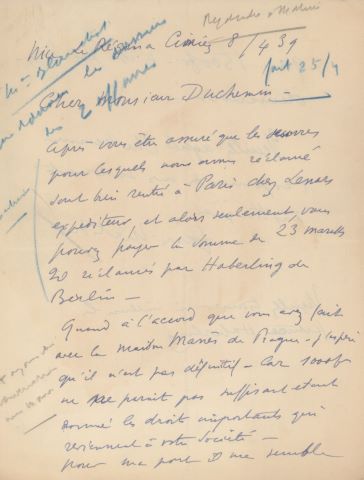 Répondre à Matisse
Nice le Régina Cimiez 8/4 39
fait 25/4
Mr Blanchot
les dessins
les 2 affaires
Cher Monsieur Duchemin -
Après vous être assuré que les œuvres
pour lesquels nous avons réclamé
sont bien rentrés à Paris chez Lenars
expéditeur, et alors seulement, vous
pouvez payer la somme de 23 marks
20 réclamés par Haberling de
Berlin -
Quand à l'accord que vous avez fait
avec la maison de Prague - j'espère
qu'il n'est pas définitif - Car 1000f
ne me parait pas suffisant étant
donné les droits importants qui
reviennent à votre Société -
Pour ma part il me semble